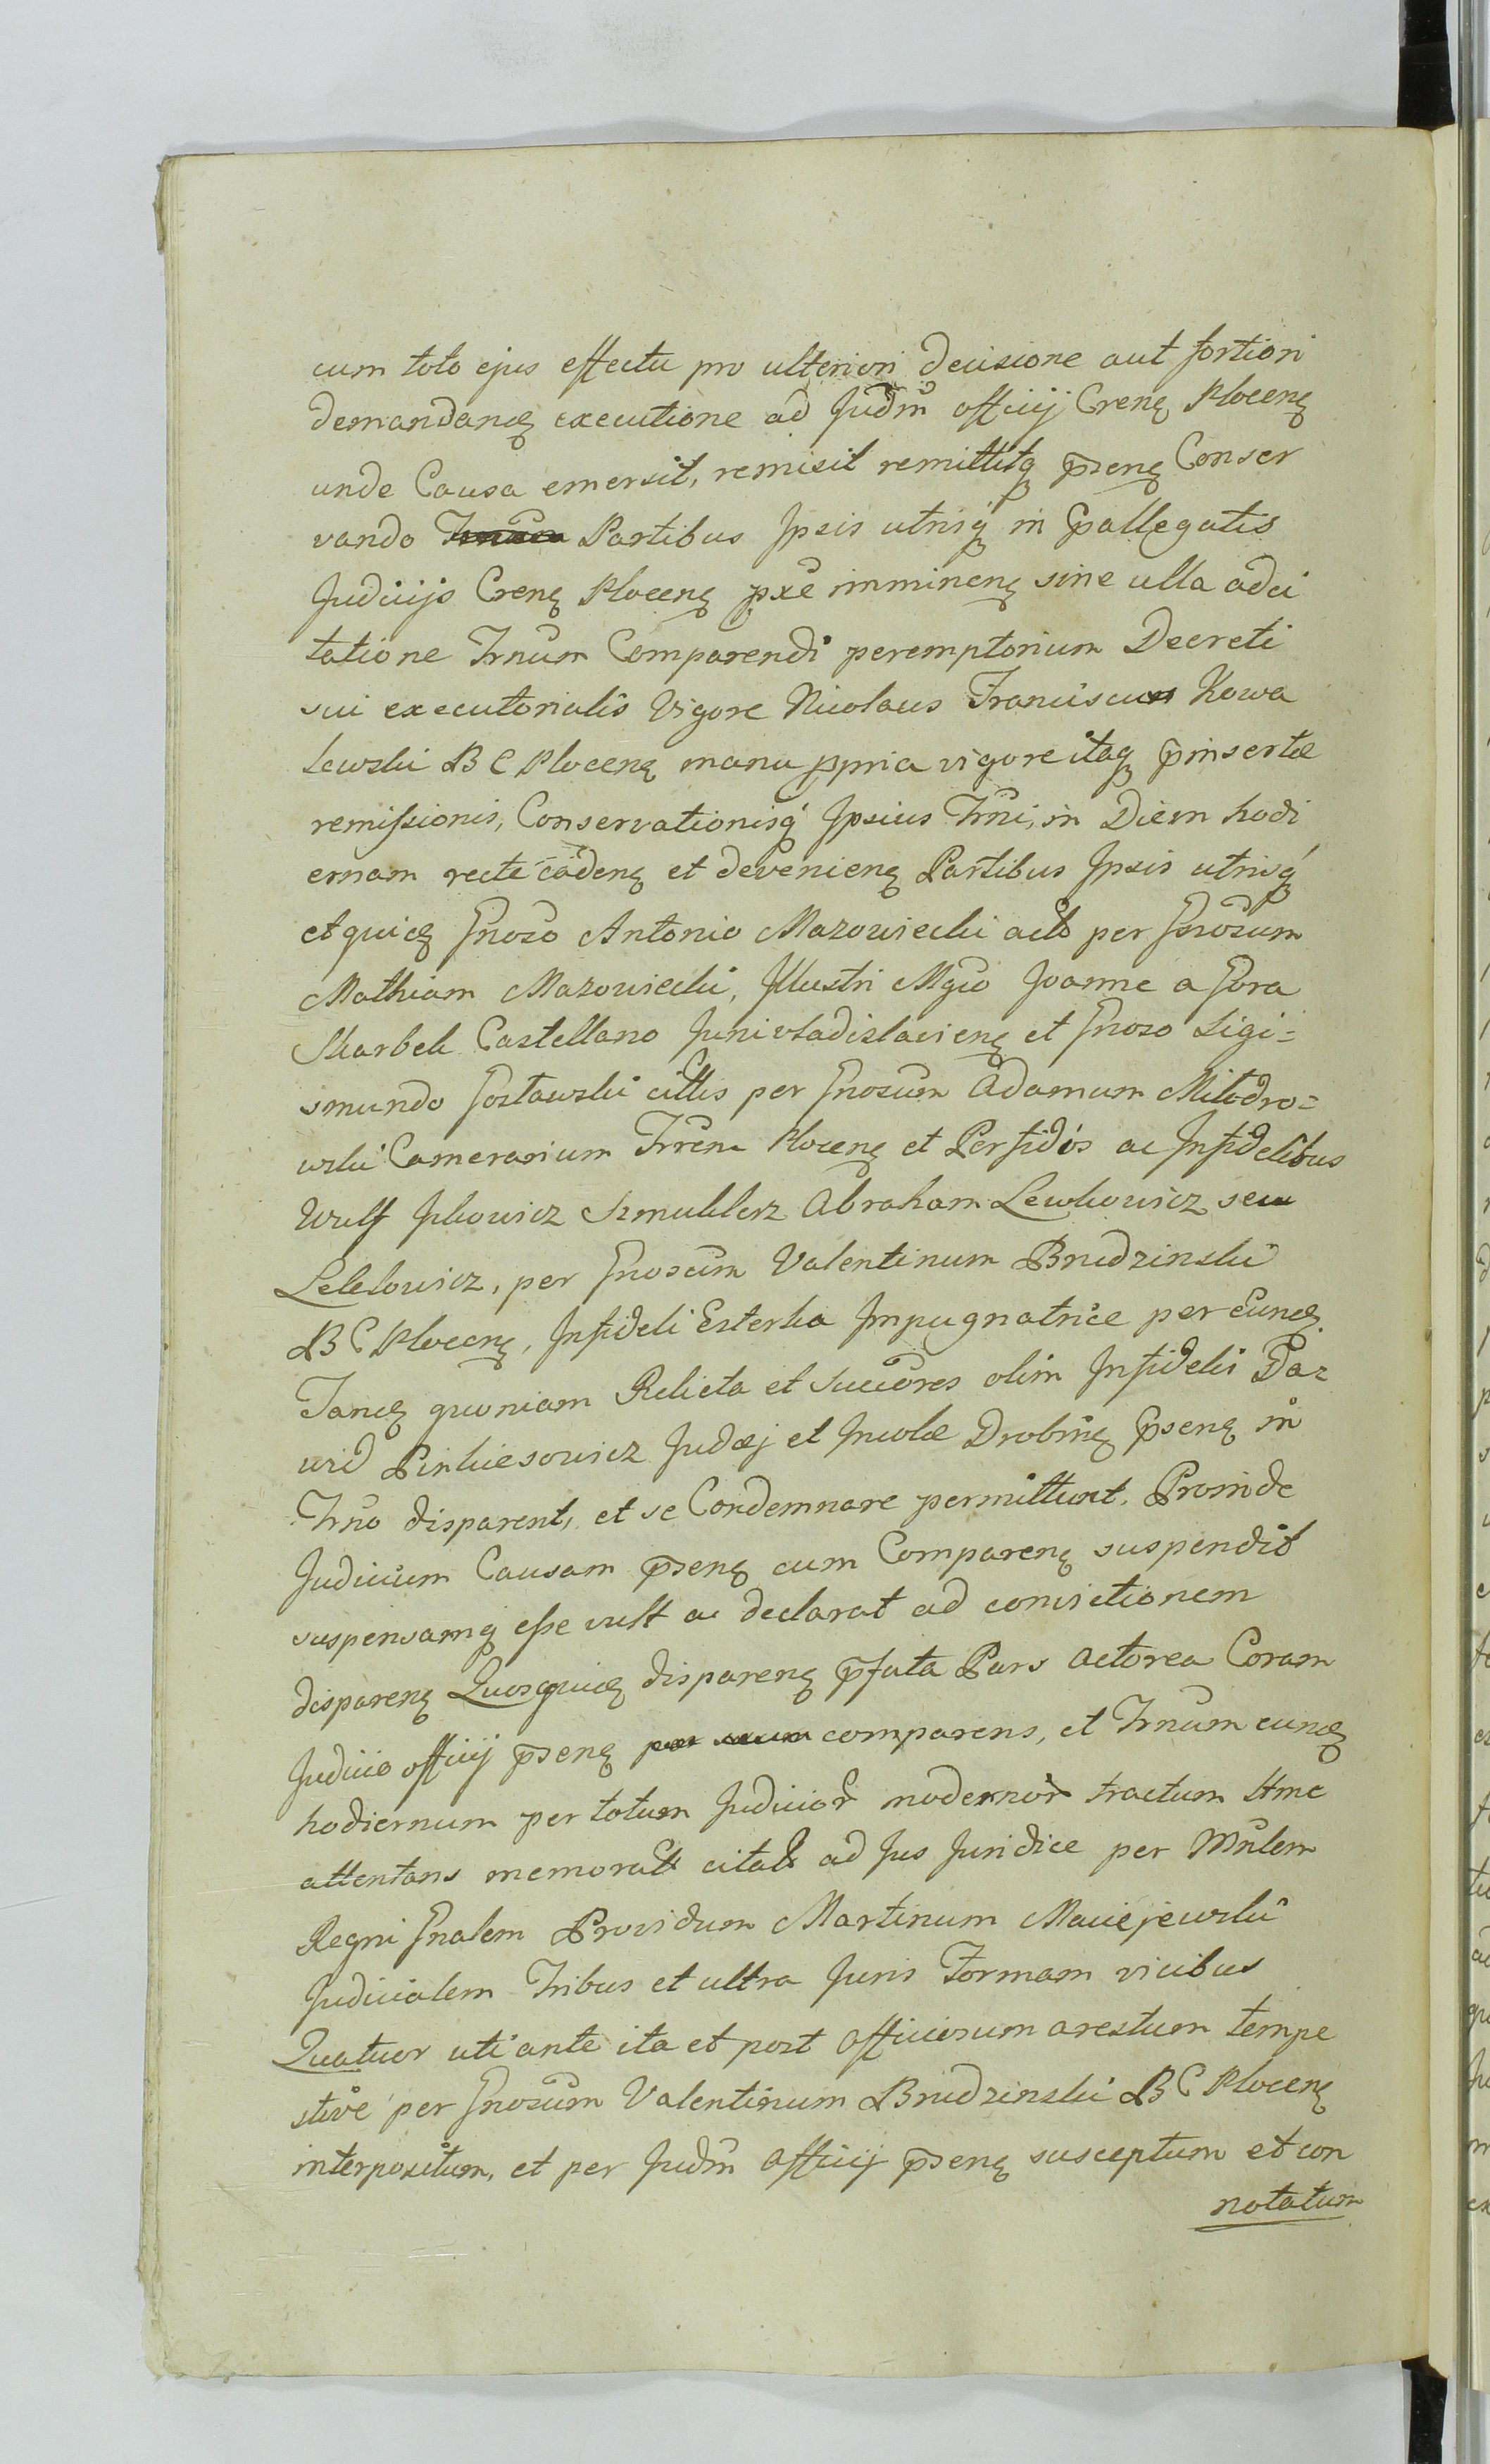 cum toto ejus effectu pro ulteriori decisione aut fortiori
demandanđ executione ad Judm̃ officij Crenę Plocenę
unde Causa emersit, remisit remittitq̨ p̃senę Conser
vando Partibus Ipsis utrisq̨ in p̃allegatis
Judicijs Crenę Plocenę pxe᷃ imminenę sine ulla adci
tatione Trñum Comparendi peremptorium Decreti
sui executorialis Vigore Nicolaus Franciscus Kowa
lewski B C Plocenę manu ppria vigore itaq̨ p̃insertæ
remissionis, Conservationisq̨ Ipsius Trñi, in Diem hodi
ernam recte cadenę et devenienę Partibus Ipsis utrisq̨
et quidę Gñoso Antonio Mazowiecki acto per Gñosum
Mathiam Mazowiecki, Illustri Mgco Joanne a Gora
Skarbek Castellano Junivladislavienę et Gñoso Sigi=
smundo Gostawski cittis per Gñosum Adamum Milodro=
wski Camerarium Trrenę Plocenę et Perfidis ac Infidelibus
Wulf Jckowicz Szmuklerz Abraham Lewkowicz seu
Lelelowicz, per Gñosum Valentinum Brudzinski
B C Plocenę, Infideli Esterka Impugnatrice per eundę
Tandę quoniam Relicta et Succ̃ores olim Infidelis Da=
wid Pinkiesowicz Judæj et Incolæ Drobinę p̃senę in
Trño disparent, et se Condemnare permittunt. Proinde
Judicium Causam p̃senę cum Comparenę suspendit
suspensamq̨ esse vult ac declarat ad convictionem
disparenę Quosquidę disparenę p̃fata Pars Actorea Coram
Judicio officij p̃senę comparens, et Trñum eundę
hodiernum per totum Judicior̃ modernor̃ tractum Hmc
attentans memorats citats ad Jus Juridice per Mñlem
Regni Gñalem Providum Martinum Maciejewski
Judicialem Tribus et ultra Juris Formam vicibus
Quatuor uti ante ita et post Officiosum arestum tempe
stive per Gñosum Valentinum Brudzinski B C Plocenę
interpositum, et per Judm̃ Officij p̃senę susceptum et con
notatum